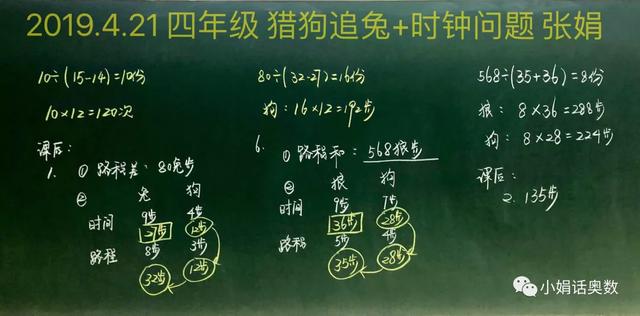 2019.4.21 四年级 猎狗追兔+时钟问题 张娟
10÷(15-14)=10份
10×12=120次
课后:
1. ① 路程差: 80兔步
② 兔 狗
时间 9步 4步
27步 12步
路程 8步 3步
32步 12步
80÷(32-27)=16份
狗: 16×12=192步
6. ① 路程和: 568狼步
② 狼 狗
时间 9步 7步
36步 28步
路程 5步 4步
35步 28步
568÷(35+36)=8份
狼: 8×36=288步
狗: 8×28=224步
课后:
2. 135步
小娟话奥数